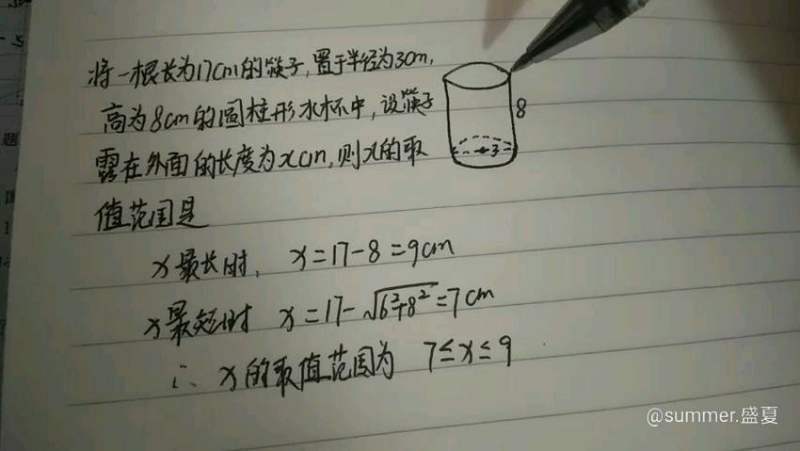 将一根长为17cm的筷子,置于半径为3cm,
高为8cm的圆柱形水杯中,设筷子
露在外面的长度为xcm,则x的取
值范围是
8
3
x最长时, x=17-8=9cm
x最短时 x=17-√6²+8²=7cm
∴ x的取值范围为 7≤x≤9
@summer.盛夏